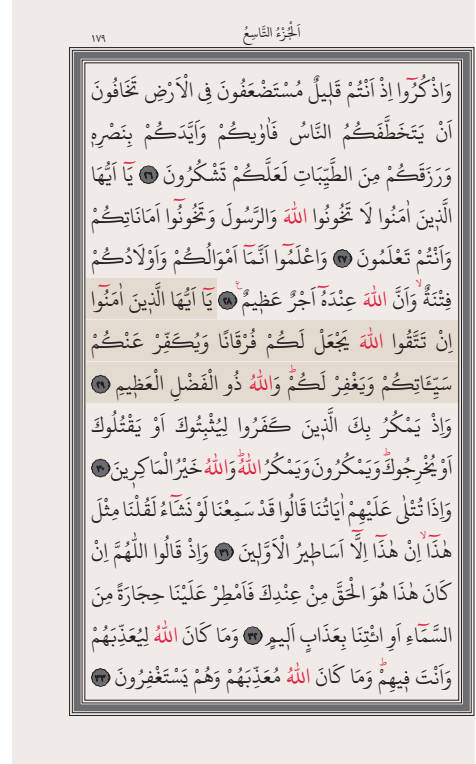 اَلْجُزْءُ التَّاسِعُ
١٧٩
وَاذْكُرُٓوا اِذْ اَنْتُمْ قَلٖيلٌ مُسْتَضْعَفُونَ فِى الْاَرْضِ تَخَافُونَ
اَنْ يَتَخَطَّفَكُمُ النَّاسُ فَاٰوٰيكُمْ وَاَيَّدَكُمْ بِنَصْرِهٖ
وَرَزَقَكُمْ مِنَ الطَّيِّبَاتِ لَعَلَّكُمْ تَشْكُرُونَ ٢٦ يَٓا اَيُّهَا
الَّذٖينَ اٰمَنُوا لَا تَخُونُوا اللّٰهَ وَالرَّسُولَ وَتَخُونُٓوا اَمَانَاتِكُمْ
وَاَنْتُمْ تَعْلَمُونَ ٢٧ وَاعْلَمُٓوا اَنَّمَٓا اَمْوَالُكُمْ وَاَوْلَادُكُمْ
فِتْنَةٌۙ وَاَنَّ اللّٰهَ عِنْدَهُٓ اَجْرٌ عَظٖيمٌۚ ٢٨ يَٓا اَيُّهَا الَّذٖينَ اٰمَنُٓوا
اِنْ تَتَّقُوا اللّٰهَ يَجْعَلْ لَكُمْ فُرْقَانًا وَيُكَفِّرْ عَنْكُمْ
سَيِّـَٔاتِكُمْ وَيَغْفِرْ لَكُمْۜ وَاللّٰهُ ذُو الْفَضْلِ الْعَظٖيمِ ٢٩
وَاِذْ يَمْكُرُ بِكَ الَّذٖينَ كَفَرُوا لِيُثْبِتُوكَ اَوْ يَقْتُلُوكَ
اَوْ يُخْرِجُوكَۜ وَيَمْكُرُونَ وَيَمْكُرُ اللّٰهُۜ وَاللّٰهُ خَيْرُ الْمَاكِرٖينَ ٣٠
وَاِذَا تُتْلٰى عَلَيْهِمْ اٰيَاتُنَا قَالُوا قَدْ سَمِعْنَا لَوْ نَشَٓاءُ لَقُلْنَا مِثْلَ
هٰذَٓاۙ اِنْ هٰذَٓا اِلَّٓا اَسَاطٖيرُ الْاَوَّلٖينَ ٣١ وَاِذْ قَالُوا اللّٰهُمَّ اِنْ
كَانَ هٰذَا هُوَ الْحَقَّ مِنْ عِنْدِكَ فَاَمْطِرْ عَلَيْنَا حِجَارَةً مِنَ
السَّمَٓاءِ اَوِ ائْتِنَا بِعَذَابٍ اَلٖيمٍ ٣٢ وَمَا كَانَ اللّٰهُ لِيُعَذِّبَهُمْ
وَاَنْتَ فٖيهِمْۜ وَمَا كَانَ اللّٰهُ مُعَذِّبَهُمْ وَهُمْ يَسْتَغْفِرُونَ ٣٣